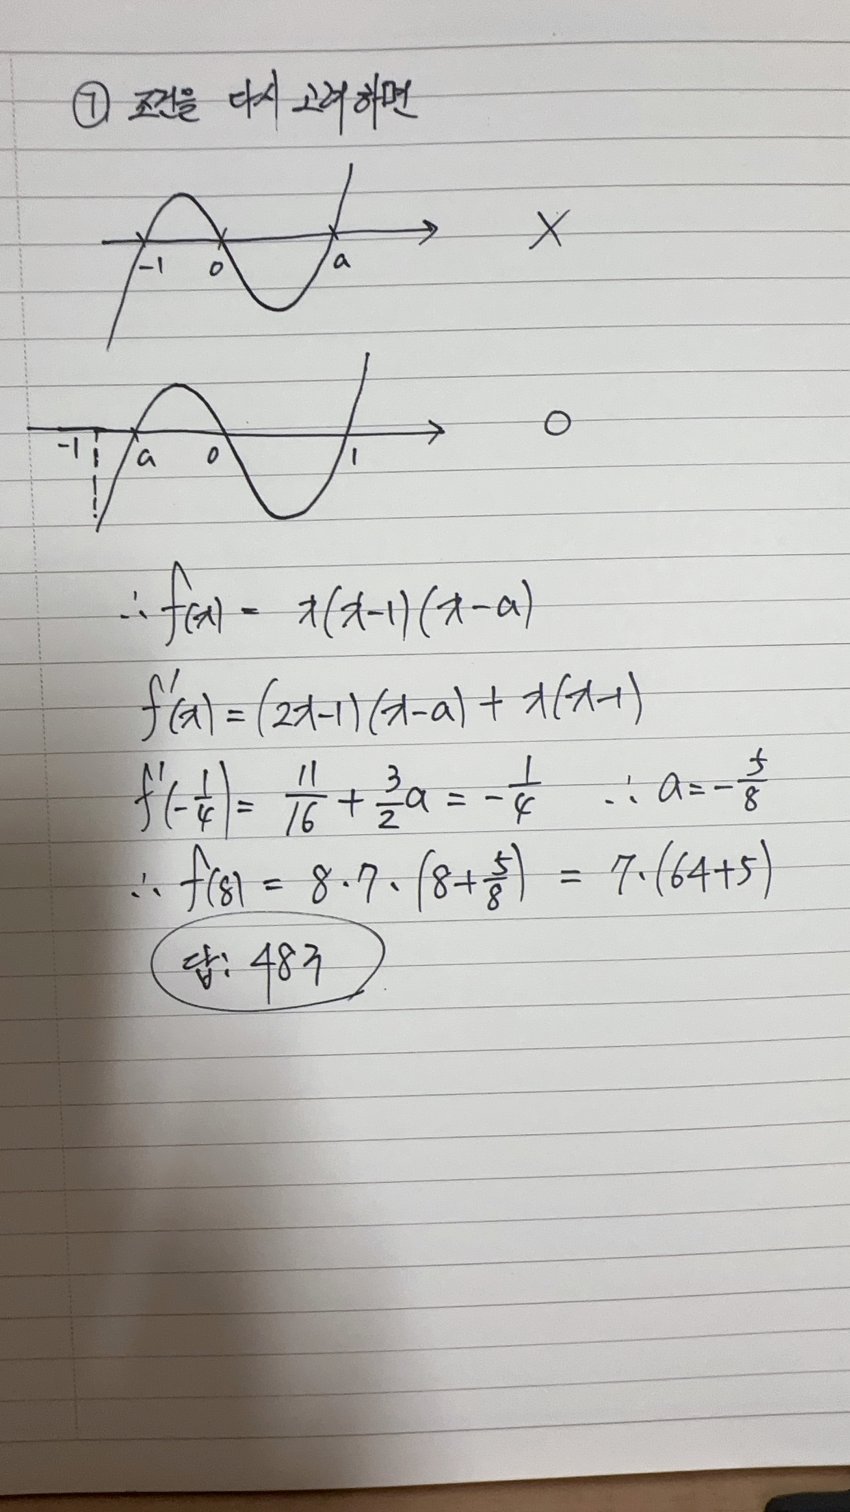 ⑦ 조건을 다시 고려하면
-1 0 a X
-1 a 0 1 O
∴ f(x) = x(x-1)(x-a)
f'(x) = (2x-1)(x-a) + x(x-1)
f'(-1/4) = 11/16 + 3/2 a = -1/4 ∴ a = -5/8
∴ f(8) = 8·7·(8+5/8) = 7·(64+5)
답: 483